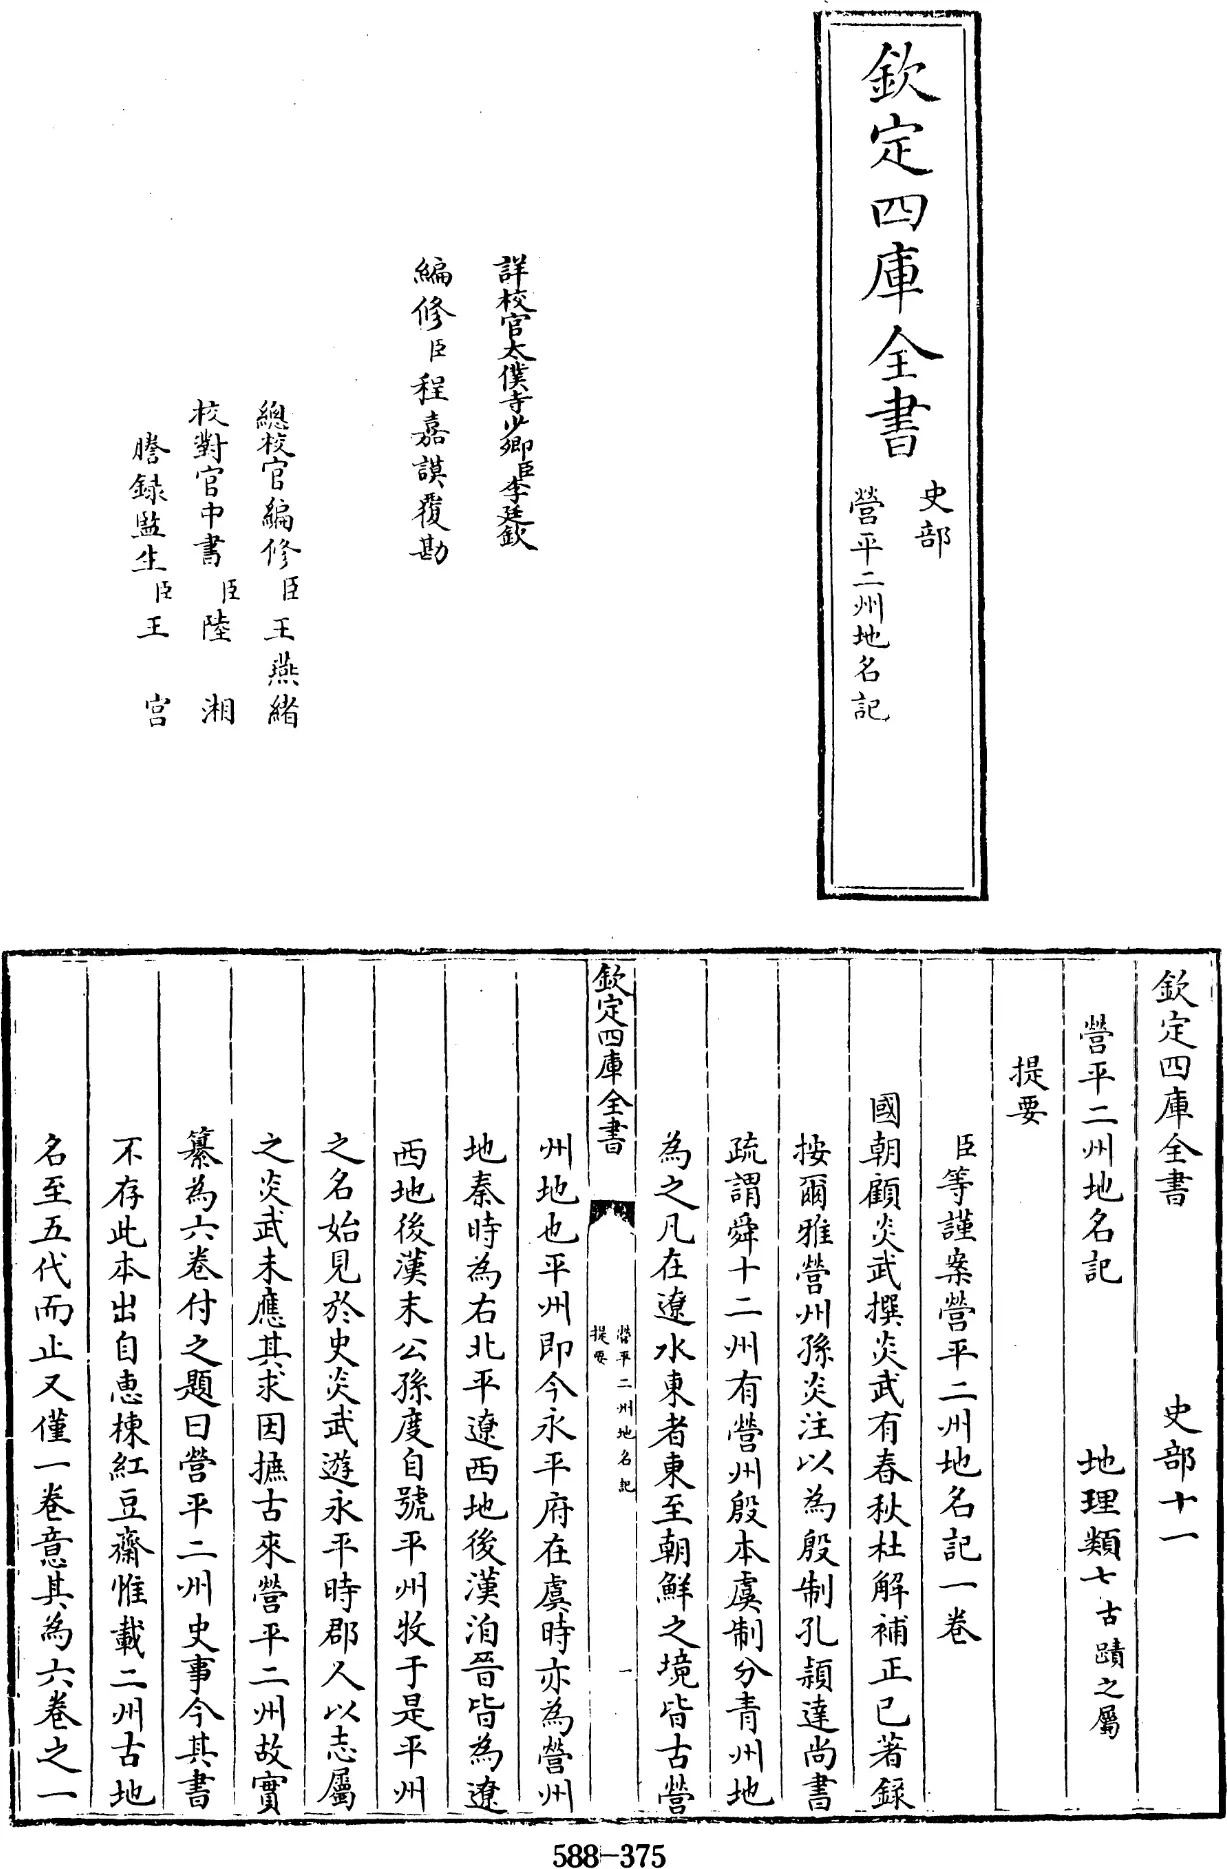 欽定四庫全書
史部
營平二州地名記
詳校官太僕寺少卿臣李廷欽
編修臣程嘉謨覆勘
總校官編修臣王燕緒
校對官中書臣陸湘
謄録監生臣王宫
欽定四庫全書 史部十一
營平二州地名記 地理類七古蹟之屬
提要
臣等謹案營平二州地名記一卷
國朝顧炎武撰炎武有春秋杜解補正已著録
按爾雅營州孫炎注以為殷制孔穎達尚書
疏謂舜十二州有營州殷本虞制分青州地
為之凡在遼水東者東至朝鮮之境皆古營
欽定四庫全書
營平二州地名記
提要
一
州地也平州即今永平府在虞時亦為營州
地秦時為右北平遼西地後漢洎晉皆為遼
西地後漢末公孫度自號平州牧于是平州
之名始見於史炎武遊永平時郡人以志屬
之炎武未應其求因摭古來營平二州故實
纂為六卷付之題曰營平二州史事今其書
不存此本出自惠棟紅豆齋惟載二州古地
名至五代而止又僅一卷意其為六卷之一
588-375